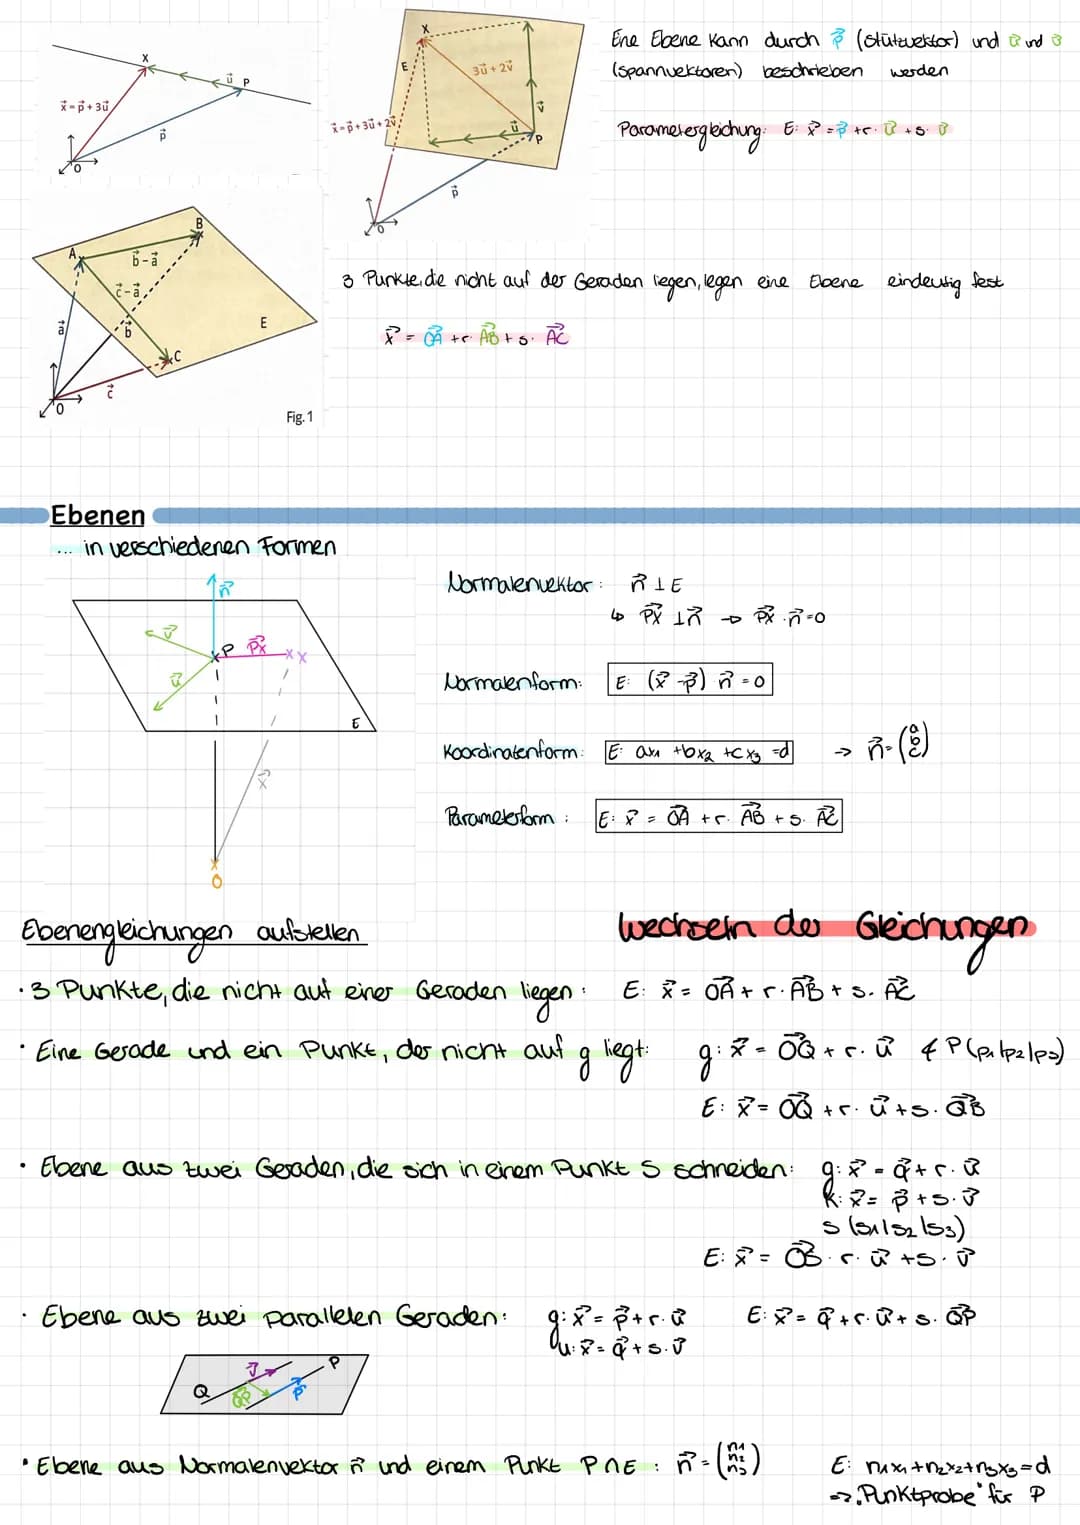 X
u⃗ P
x⃗ = p⃗ + 3u⃗
p⃗
O
X
E
3u⃗ + 2v⃗
v⃗
x⃗ = p⃗ + 3u⃗ + 2v⃗
u⃗
P
p⃗
O
Ene Ebene kann durch p⃗ (Stützvektor) und u⃗ und v⃗
(spannvektoren) beschrieben werden
Parametergleichung: E: x⃗ = p⃗ + r · u⃗ + s · v⃗
B
A
b⃗ - a⃗
c⃗ - a⃗
a⃗
b⃗
E
C
c⃗
O
Fig. 1
3 Punkte, die nicht auf der Geraden liegen, legen eine Ebene eindeutig fest
x⃗ = OA⃗ + r · AB⃗ + s · AC⃗
Ebenen
... in verschiedenen Formen
n⃗
v⃗
P PX⃗ X
u⃗
E
x⃗
O
Normalenvektor: n⃗ ⊥ E
↳ PX⃗ ⊥ n⃗ → PX⃗ · n⃗ = 0
Normalenform: E: (x⃗ - p⃗) n⃗ = 0
Koordinatenform: E: ax₁ + bx₂ + cx₃ = d → n⃗ = (a b c)
Parameterform: E: x⃗ = OA⃗ + r · AB⃗ + s · AC⃗
Ebenengleichungen aufstellen
wechseln der Gleichungen
· 3 Punkte, die nicht auf einer Geraden liegen: E: x⃗ = OA⃗ + r · AB⃗ + s · AC⃗
· Eine Gerade und ein Punkt, der nicht auf g liegt: g: x⃗ = OQ⃗ + r · u⃗ & P(p₁|p₂|p₃)
E: x⃗ = OQ⃗ + r · u⃗ + s · QB⃗
· Ebene aus zwei Geraden, die sich in einem Punkt S schneiden: g: x⃗ = q⃗ + r · u⃗
k: x⃗ = p⃗ + s · v⃗
S (s₁|s₂|s₃)
E: x⃗ = OS⃗ · r · u⃗ + s · v⃗
· Ebene aus zwei parallelen Geraden: g: x⃗ = p⃗ + r · u⃗ E: x⃗ = q⃗ + r · u⃗ + s · QP⃗
u: x⃗ = q⃗ + s · v⃗
v⃗ P
Q QP⃗ p⃗
· Ebene aus Normalenvektor n⃗ und einem Punkt P ∩ E: n⃗ = (n₁ n₂ n₃) E: n₁x₁ + n₂x₂ + n₃x₃ = d
→ „Punktprobe" für P